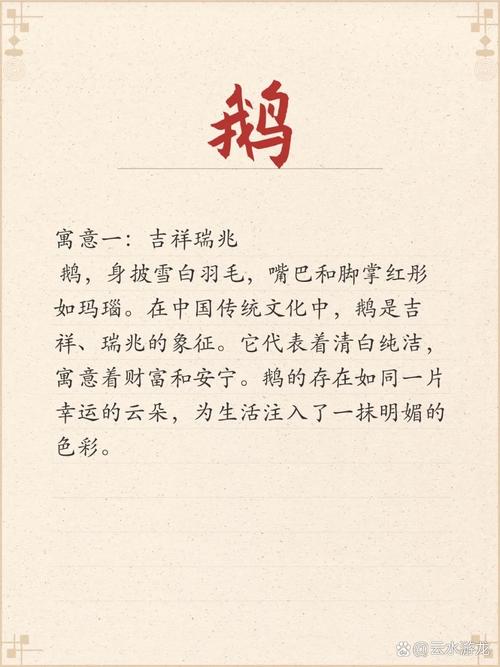 鹅
寓意一：吉祥瑞兆
鹅，身披雪白羽毛，嘴巴和脚掌红彤
如玛瑙。在中国传统文化中，鹅是吉
祥、瑞兆的象征。它代表着清白纯洁，
寓意着财富和安宁。鹅的存在如同一片
幸运的云朵，为生活注入了一抹明媚的
色彩。
云水游龙